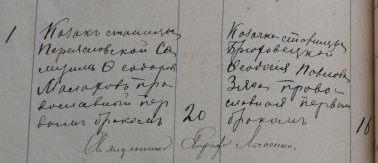 1
Казакъ станицы
Переясловской Са-
муилъ Ѳеодоровъ
Малаховъ пра-
вославный пер-
вымъ бракомъ
20
Казачка станицы
Брюховецкой
Ѳеодосія Павлова
право-
славная первым
бракомъ
16
Священникъ